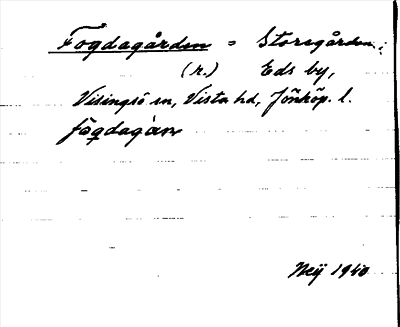 Fogdagården = Storegården i
(r.) Eds by,
Visingsö sn, Vista hd, Jönköp. l.
fògdagàn
Neÿ 1940